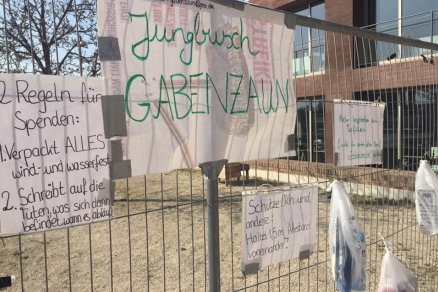 Jungbusch
GABENZAUN
2 Regeln für
Spenden:
1. Verpackt ALLES
wind- und wasserfest
2. Schreibt auf die
Tüten, was sich darin
befindet wann es abläuft
Schütze dich und
andere:
Haltet 1,5m Abstand
voneinander!